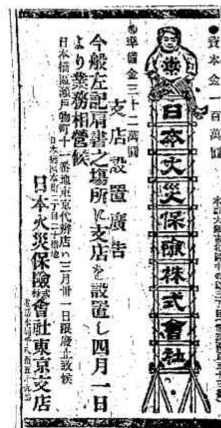 資本金一百萬圓
日本火災保險株式會社
準備金三十二萬圓
支店設置廣告
今般左記肩書之塲所に支店を設置し四月一日
より業務相營候
日本橋區瀬戸物町十二番地東京代辨店は三月卅一日限廢止致候
日本火災保險株式會社東京支店